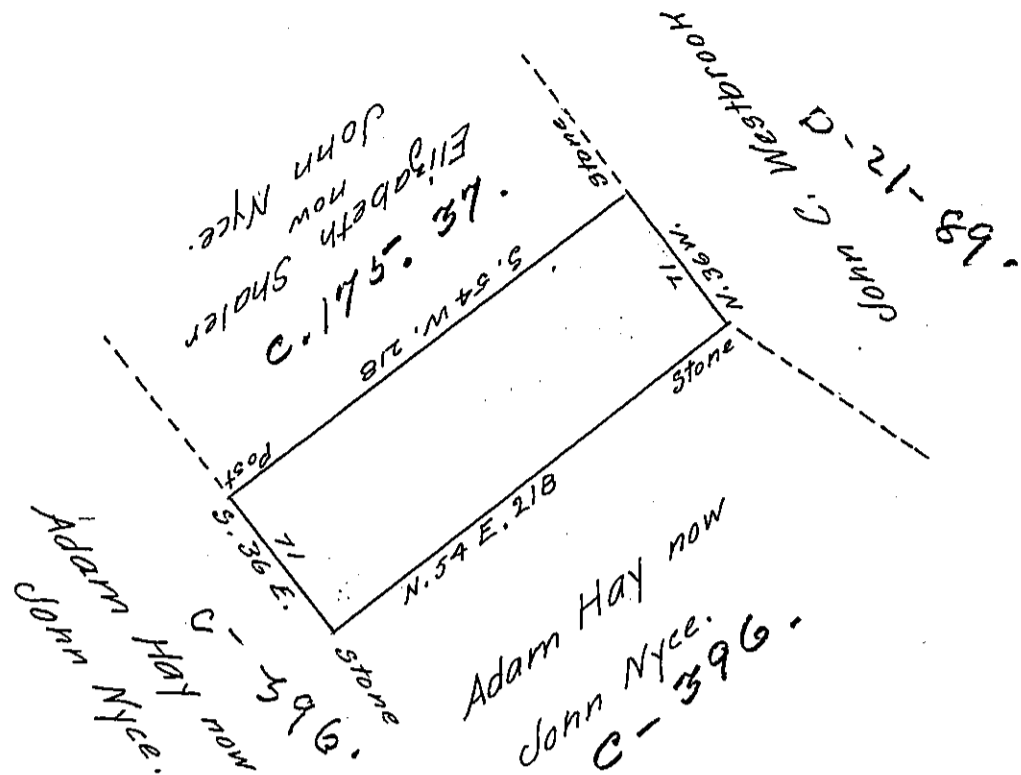 John C. Westbrook
D-21-89.
Elizabeth Shaler
now
John Nyce.
C. 175. 37.
Stone
N. 36 W.
71
S. 54 W. 218
Stone
Post
S. 36 E.
71
N. 54 E. 218
Stone
Adam Hay now
John Nyce.
C-396.
Adam Hay now
John Nyce.
C-396.